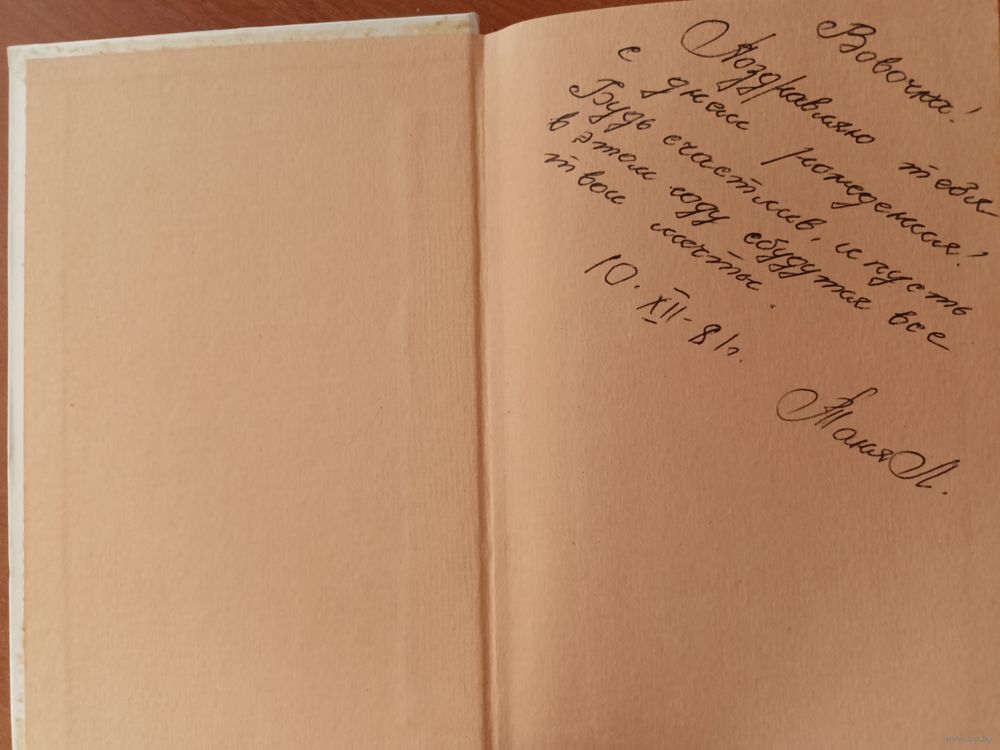 Вовочка!
Поздравляю тебя
с днем рождения!
Будь счастлив, и пусть
в этом году сбудутся все
твои мечты.
10. XII - 81г.
Таня Л.
www.ay.by